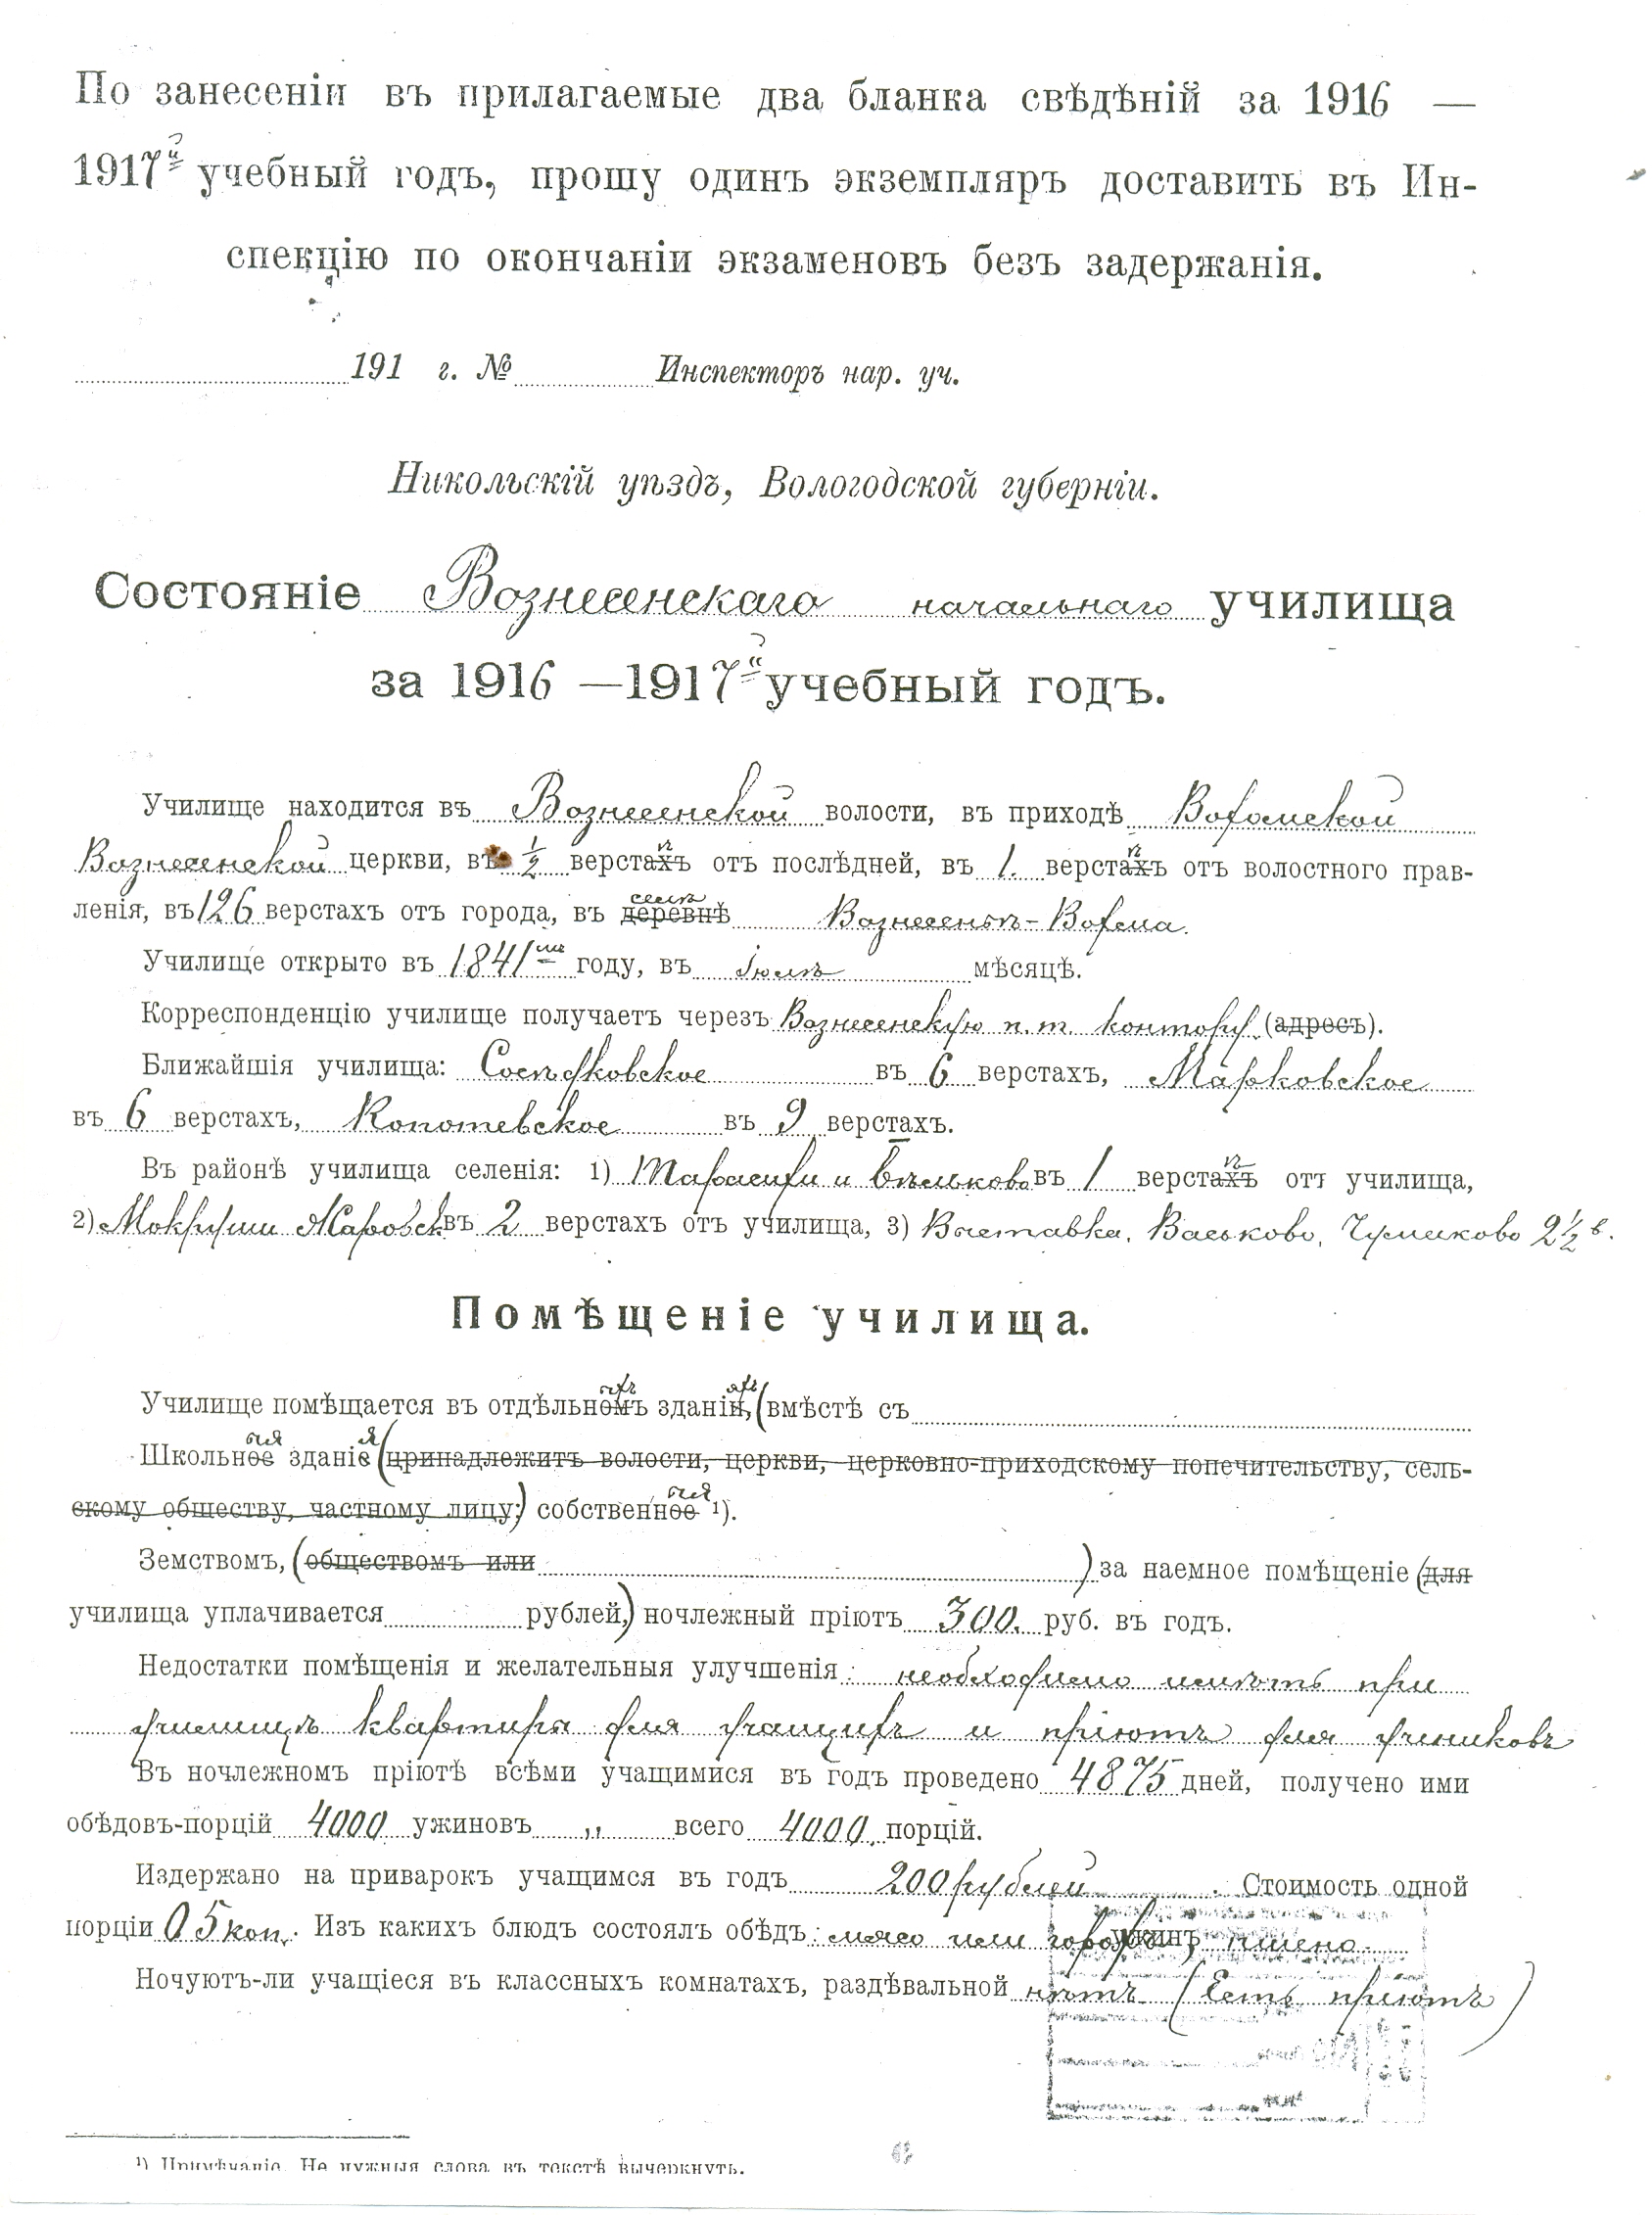 По занесеніи въ прилагаемые два бланка свѣдѣній за 1916 —
1917й учебный годъ, прошу одинъ экземпляръ доставить въ Ин-
спекцію по окончаніи экзаменовъ безъ задержанія.
191 г. № Инспекторъ нар. уч.
Никольскій уѣздъ, Вологодской губерніи.
Состояніе Вознесенскаго начальнаго училища
за 1916 —1917й учебный годъ.
Училище находится въ Вознесенской волости, въ приходѣ Вохомской
Вознесенской церкви, въ ½ верстахъ отъ послѣдней, въ 1. верстахъ отъ волостного прав-
ленія, въ 126 верстахъ отъ города, въ деревнѣ селѣ Вознесенье-Вохма.
Училище открыто въ 1841мъ году, въ іюлѣ мѣсяцѣ.
Корреспонденцію училище получаетъ черезъ Вознесенскую п. т. контору (адресъ).
Ближайшія училища: Сосѣдковское въ 6 верстахъ, Марковское
въ 6 верстахъ, Копотевское въ 9 верстахъ.
Въ районѣ училища селенія: 1) Тарасихи и Бѣльково въ 1 верстахъ отъ училища,
2) Мокруши въ 2 верстахъ отъ училища, 3) Выставка, Васьково, Чумаково 2½ в.
Помѣщеніе училища.
Училище помѣщается въ отдѣльномъ зданіи, (вмѣстѣ съ
Школьное зданіе (принадлежитъ волости, церкви, церковно-приходскому попечительству, сель-
скому обществу, частному лицу;) собственное ¹).
Земствомъ, (обществомъ или ) за наемное помѣщеніе (для
училища уплачивается рублей,) ночлежный пріютъ 300. руб. въ годъ.
Недостатки помѣщенія и желательныя улучшенія: необходимо имѣть при
училищѣ квартиры для учащихъ и пріютъ для учениковъ
Въ ночлежномъ пріютѣ всѣми учащимися въ годъ проведено 4875 дней, получено ими
обѣдовъ-порцій 4000 ужиновъ „ всего 4000. порцій.
Издержано на приварокъ учащимся въ годъ 200 рублей. Стоимость одной
порціи 05 коп. Изъ какихъ блюдъ состоялъ обѣдъ: мясо или горохъ, ужинъ пшено.
Ночуютъ-ли учащіеся въ классныхъ комнатахъ, раздѣвальной нѣтъ (Есть пріютъ)
¹) Примѣчаніе. Не нужныя слова въ текстѣ вычеркнуть.